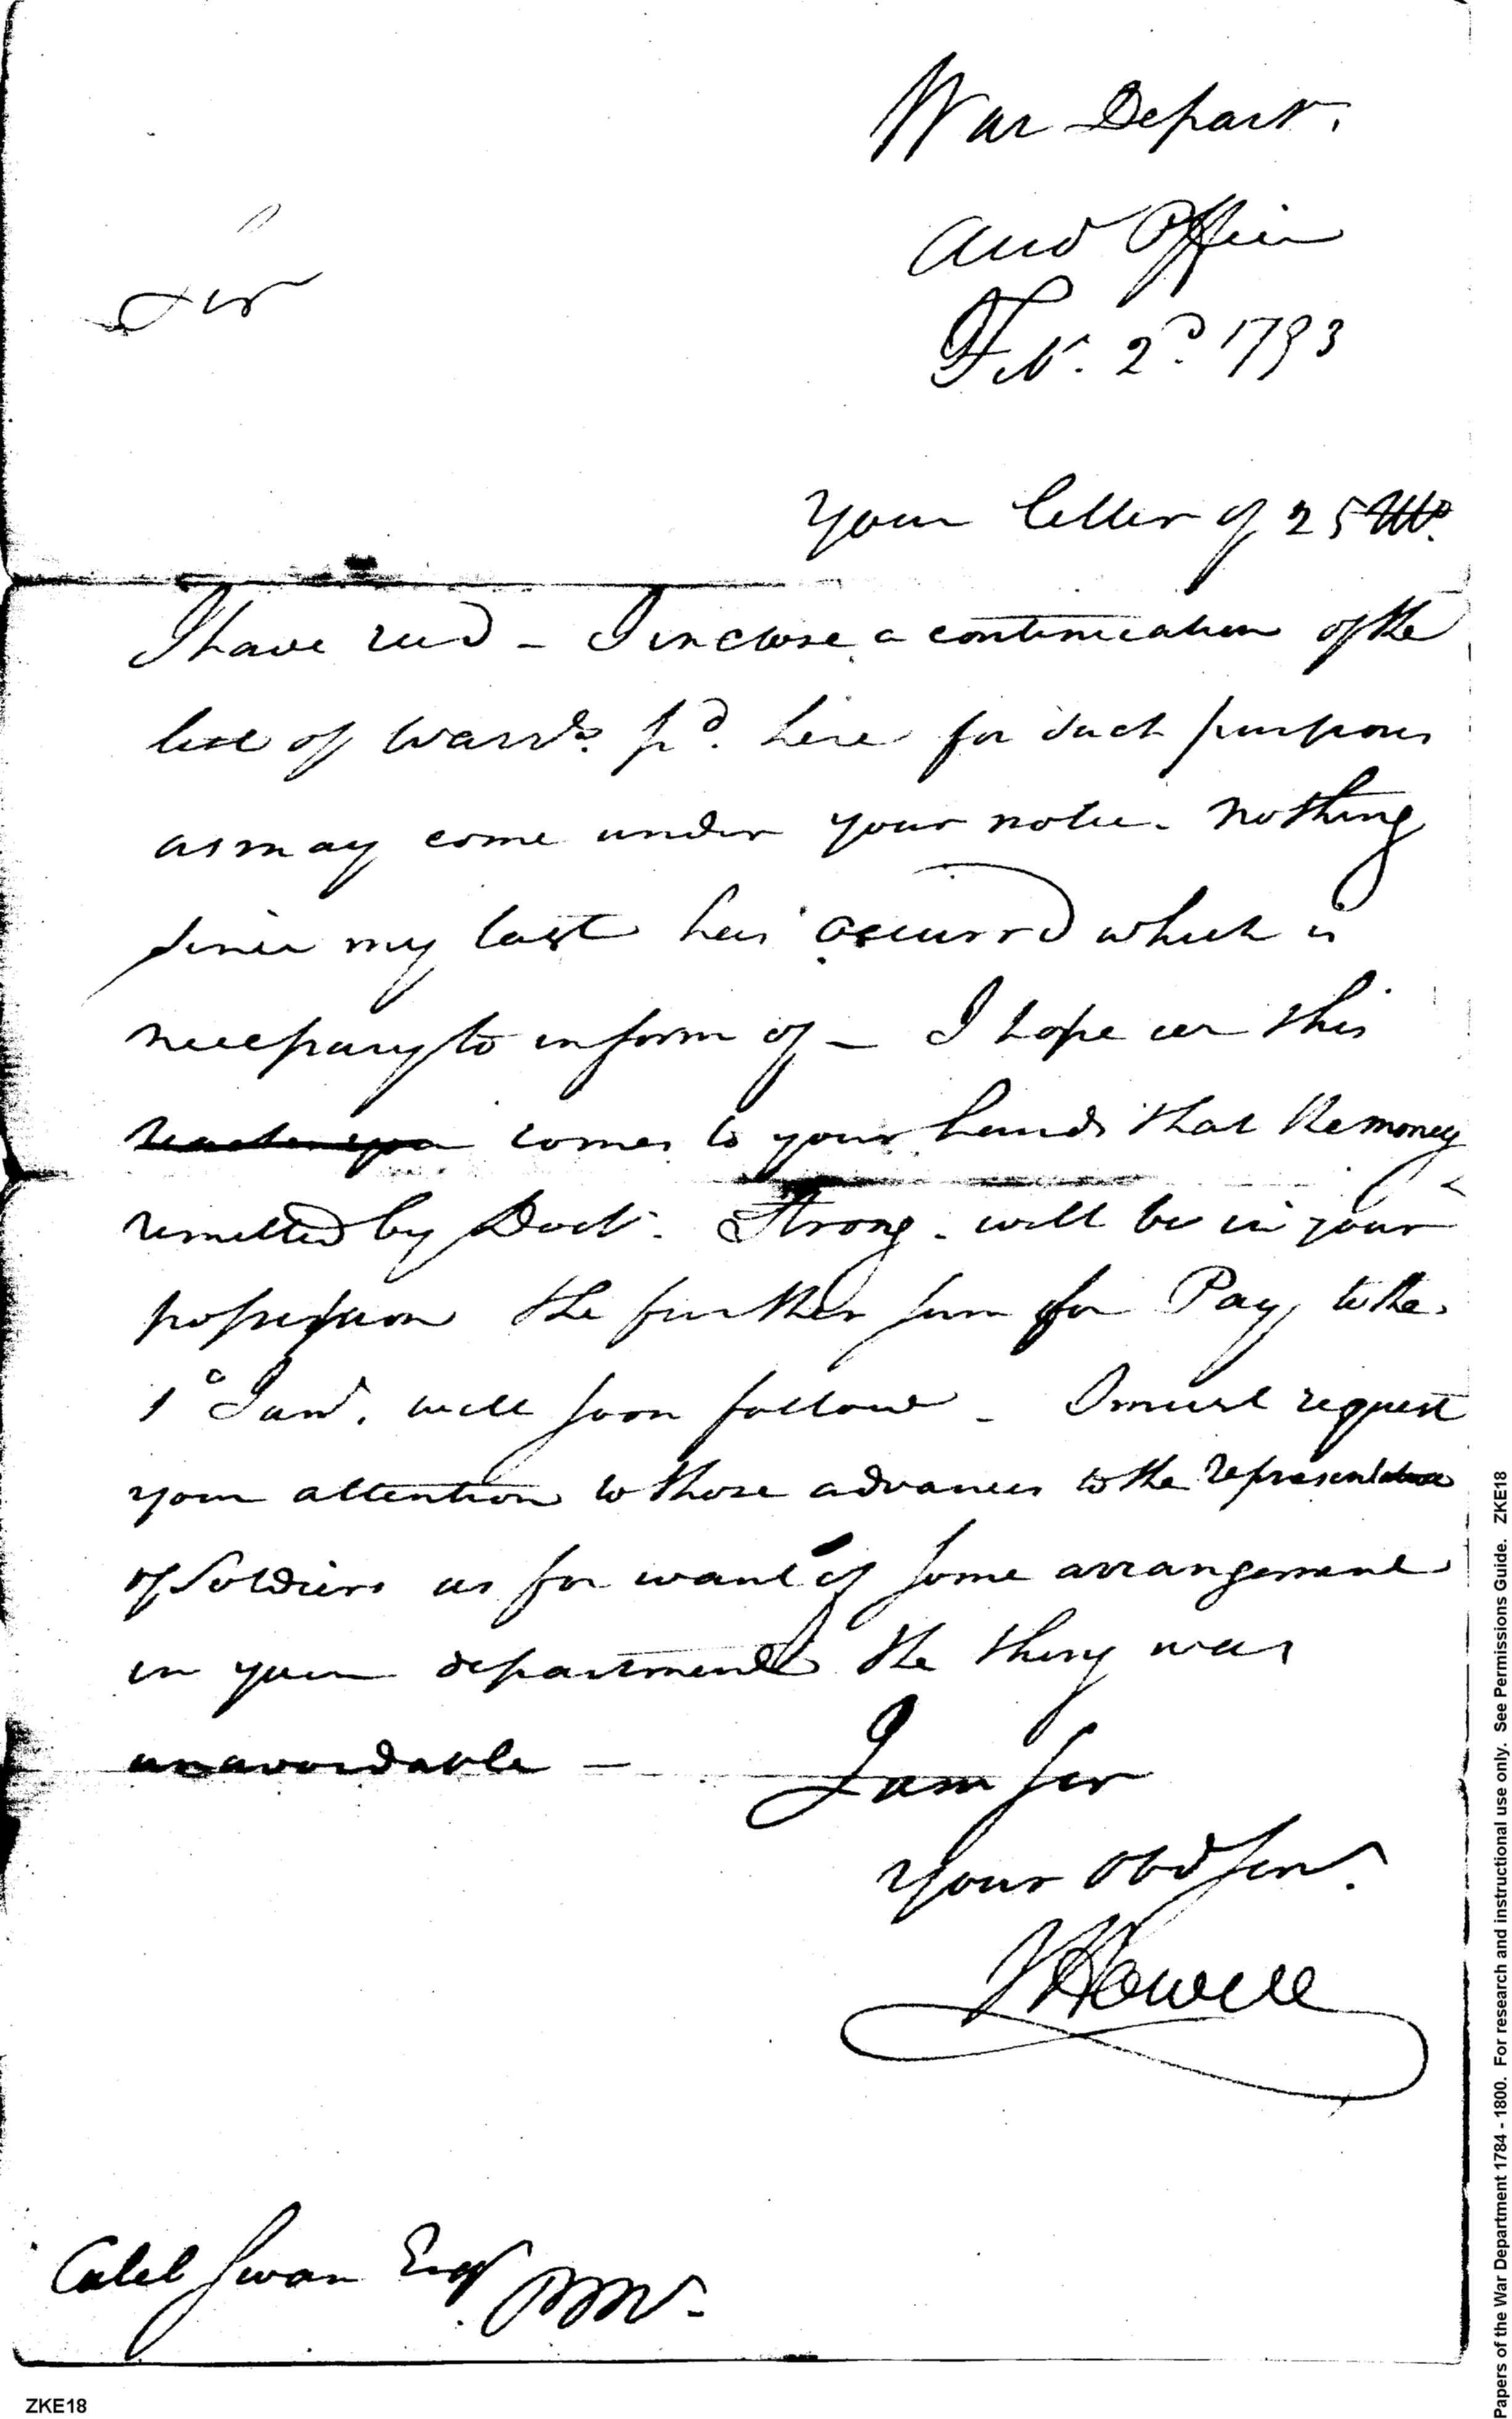 War Depart.
Acco Office
Feb. 2d. 1793
Sir
Your letter of 25 Ulto.
I have recd - I inclose a continuation of the
list of Warrts. pd. here for such purposes
as may come under your notice. Nothing
since my last has occurred which is
necessary to inform of - I hope ere this
comes to your hands that the money
remitted by Doctr. Strong. will be in your
possession the further sum for Pay to the
1st Jany. will soon follow - I must request
your attention to those advances to the representative
of Soldiers as for want of some arrangement
in your department the thing was
unavoidable -
I am Sir
Your Obd Servt.
J Howell
Caleb Swan Esqr PMr.
ZKE18
Papers of the War Department 1784 - 1800. For research and instructional use only. See Permissions Guide. ZKE18